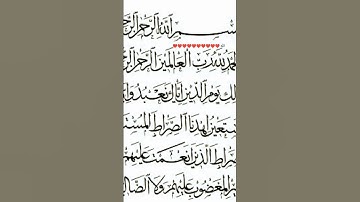 سْمِ ٱللَّهِ ٱلرَّحْمٰنِ ٱلرَّحِ
حَمْدُ لِلَّهِ رَبِّ ٱلْعَالَمِينَ ٱلرَّحْمٰنِ ٱلرَّ
لِكِ يَوْمِ ٱلدِّينِ إِيَّاكَ نَعْبُدُ وَإِ
سْتَعِينُ اهْدِنَا ٱلصِّرَاطَ ٱلْمُسْتَ
رَاطَ ٱلَّذِينَ أَنْعَمْتَ عَلَيْهِمْ
رِ ٱلْمَغْضُوبِ عَلَيْهِمْ وَلَا ٱلضَّالِّ